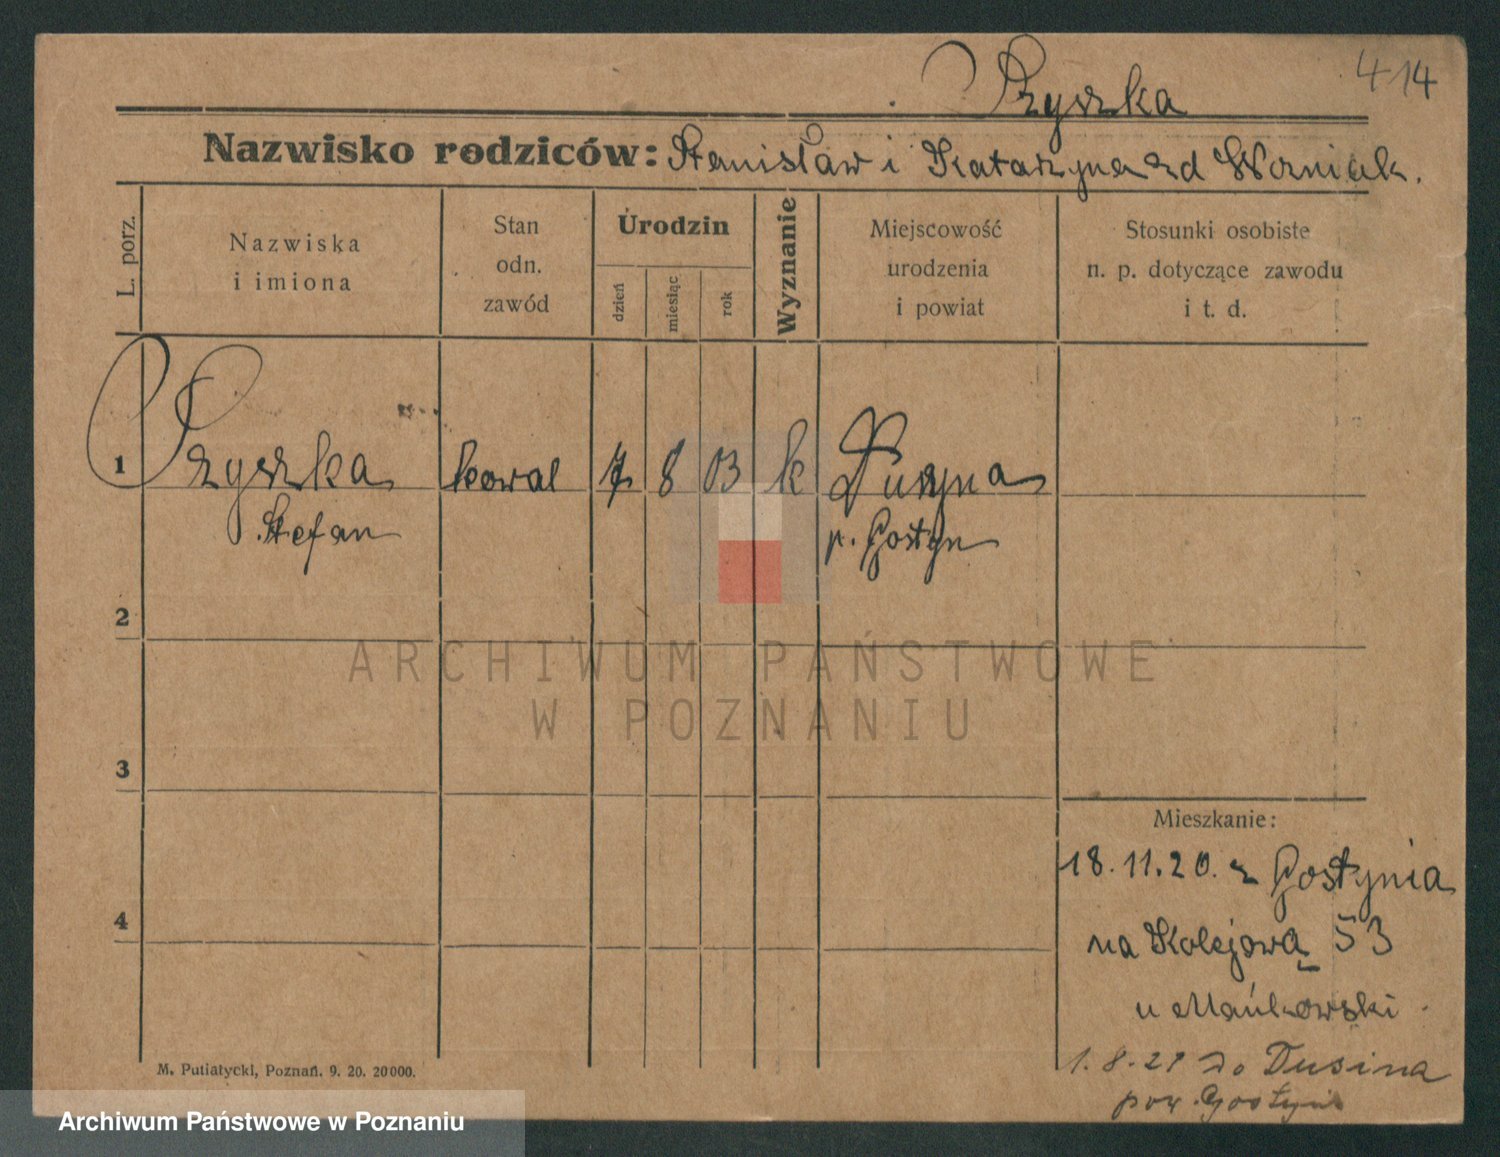 414
Pryszka
Nazwisko rodziców: Stanisław i Katarzyna zd Wozniak.
L. porz.
Nazwiska
i imiona
Stan
odn.
zawód
Urodzin
dzień
miesiąc
rok
Wyznanie
Miejscowość
urodzenia
i powiat
Stosunki osobiste
n. p. dotyczące zawodu
i t. d.
1 Pryszka kowal 7 8 03 k
Stefan p. Gostyn
2
ARCHIWUM PAŃSTWOWE
W POZNANIU
3
Mieszkanie:
18.11.20. z Gostynia
4
na Kolejową 53
u Mańkowski
1.8.21 do Dusina
pow. Gostyń
M. Putiatycki, Poznań. 9. 20. 20000.
Archiwum Państwowe w Poznaniu